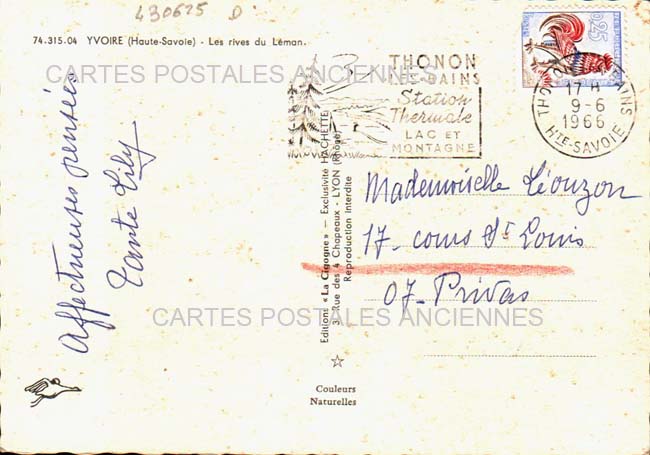 430625 D.
74.315.04 YVOIRE (Haute-Savoie) - Les rives du Léman.
CARTES POSTALES ANCIENNES
THONON
LES-BAINS
Station
Thermale
LAC ET
MONTAGNE
0,25
THONON BAINS
17 H
9-6
1966
HTE-SAVOIE
Affectueuses pensées
Tante Lily
Mademoiselle Léouzon
17- cours St Louis
07-Privas
Editions «La Cigogne» - Exclusivité HACHETTE
3, Rue des 4 Chapeaux - LYON (Rhône)
Reproduction interdite
CARTES POSTALES ANCIENNES
Couleurs
Naturelles